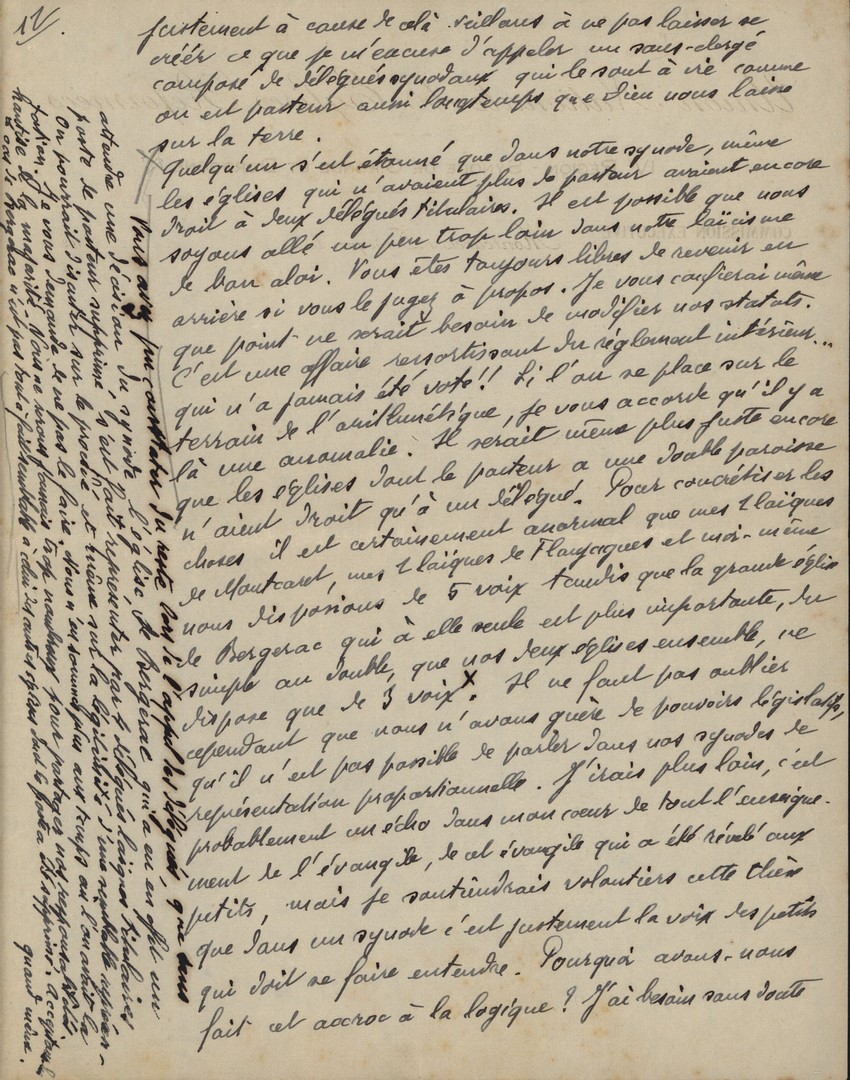 12/.
justement à cause de celà veillons à ne pas laisser se
créér ce que je m'excuse d'appeler un sous-clergé
composé de délégués synodaux qui le sont à vie comme
on est pasteur aussi longtemps que Dieu nous laisse
sur la terre.
Quelqu'un s'est étonné que dans notre synode, même
les églises qui n'avaient plus de pasteur avaient encore
droit à deux délégués titulaires. Il est possible que nous
soyons allé un peu trop loin dans notre laïcisme
de bon aloi. Vous êtes toujours libres de revenir en
arrière si vous le jugez à propos. Je vous confierai même
que point ne serait besoin de modifier nos statuts.
C'est une affaire ressortissant du réglement intérieur...
qui n'a jamais été voté!! Si l'on se place sur le
terrain de l'arithmétique, je vous accorde qu'il y a
là une anomalie. Il serait même plus juste encore
que les églises dont le pasteur a une double paroisse
n'aient droit qu'à un délégué. Pour concrétiser les
choses il est certainement anormal que mes 2 laïques
de Montcaret, mes 2 laïques de Flaujagues et moi-même
nous disposions de 5 voix tandis que la grande église
de Bergerac qui à elle seule est plus importante, du
simple au double, que nos deux églises ensemble, ne
dispose que de 3 voix x. Il ne faut pas oublier
cependant que nous n'avons guère de pouvoirs législatifs,
qu'il n'est pas possible de parler dans nos synodes de
représentation proportionnelle. J'irais plus loin, c'est
probablement un écho dans mon coeur de tout l'enseigne-
ment de l'évangile, de cet évangile qui a été révélé aux
petits, mais je soutiendrais volontiers cette thèse
que dans un synode c'est justement la voix des petits
qui doit se faire entendre. Pourquoi avons-nous
fait cet accroc à la logique ? J'ai besoin sans doute
x Vous avez pu constater du reste lors de l'appel des délégués que sans
attendre une décision du synode l'église de Bergerac qui a eu en effet un
poste de pasteur supprimé s'est fait représenter par 4 délégués laïques titulaires
On pourrait discuter sur le procédé et même sur la légitimité d'une semblable représen-
tation. Je vous demande de ne pas le faire. Nous n'en sommes plus aux temps où l'on avait la
hantise de la majorité. Vous ne serons jamais trop nombreux pour partager nos responsabilités.
Le cas de Bergerac n'est pas tout à fait semblable à celui des autres églises dont le poste a été supprimé. Acceptons le
quand même.